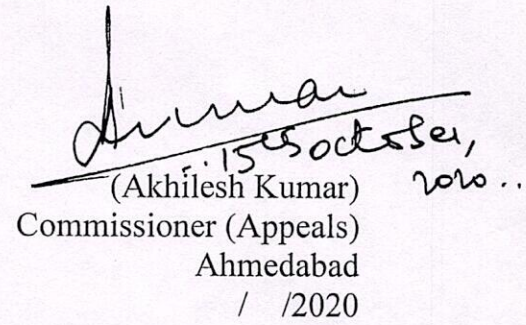 15th October,
2020..
(Akhilesh Kumar)
Commissioner (Appeals)
Ahmedabad
/ /2020